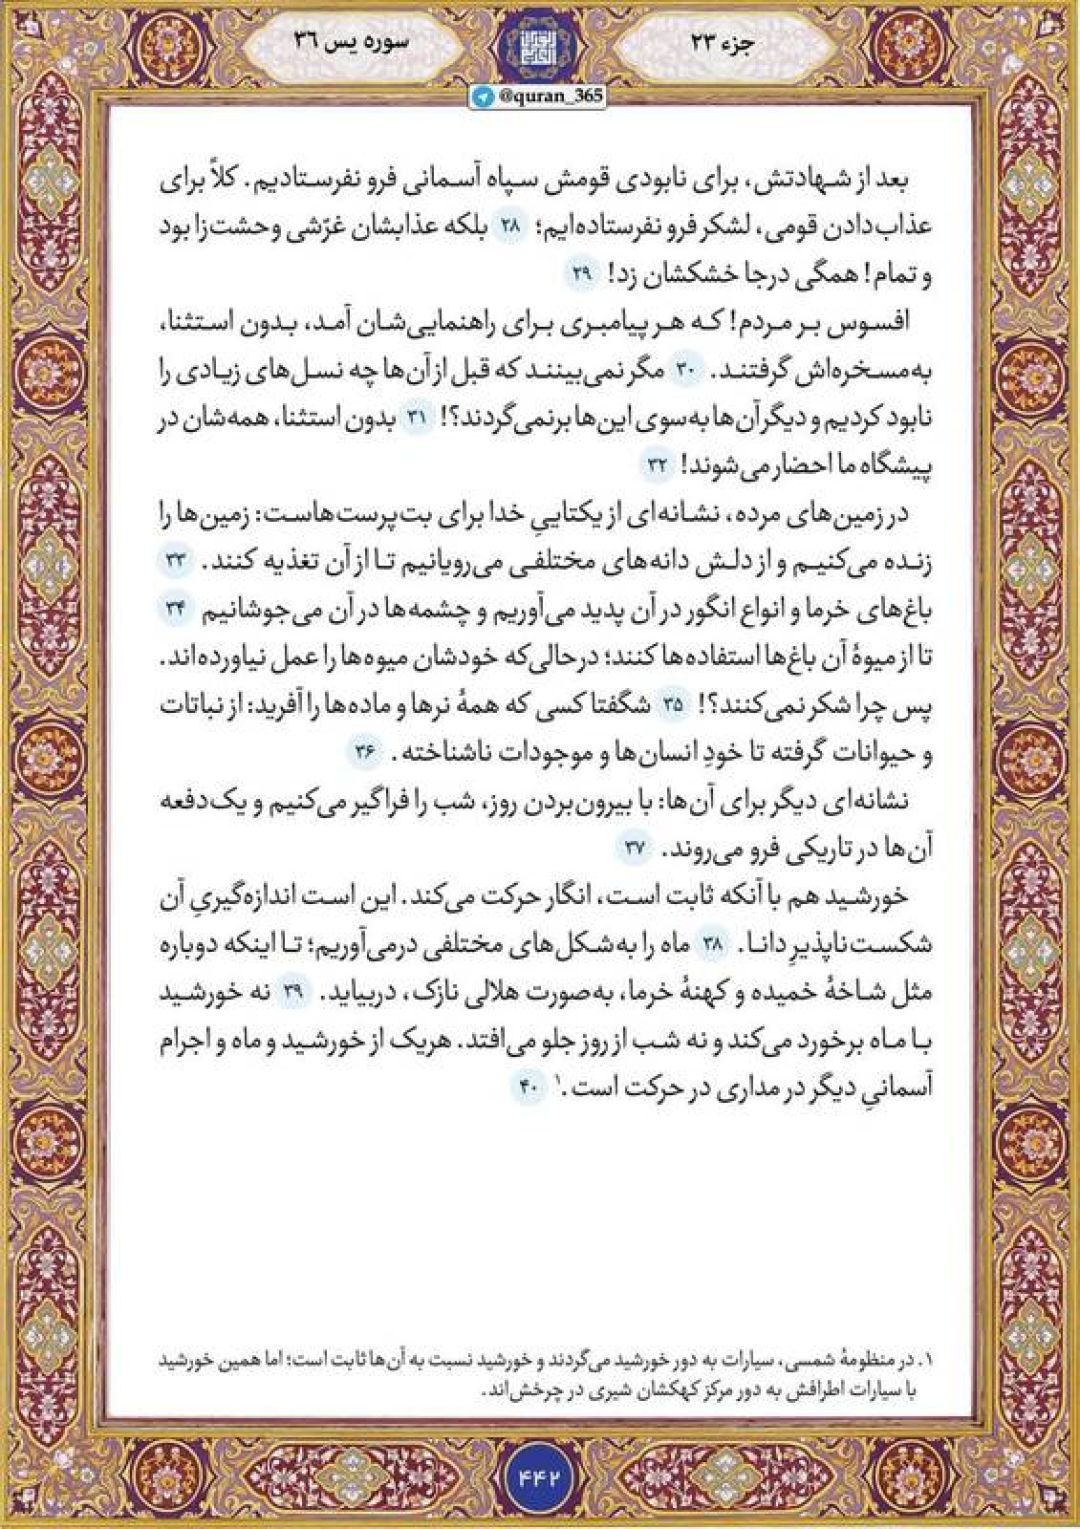 جزء ۲۳
سوره یس ۳۶
@quran_365
بعد از شهادتش، برای نابودی قومش سپاه آسمانی فرو نفرستادیم. کلاً برای
عذاب‌دادن قومی، لشکر فرو نفرستاده‌ایم؛ ۲۸ بلکه عذابشان غرّشی وحشت‌زا بود
و تمام! همگی درجا خشکشان زد! ۲۹
افسوس بر مردم! که هر پیامبری برای راهنمایی‌شان آمد، بدون استثنا،
به‌مسخره‌اش گرفتند. ۳۰ مگر نمی‌بینند که قبل از آن‌ها چه نسل‌های زیادی را
نابود کردیم و دیگر آن‌ها به‌سوی این‌ها برنمی‌گردند؟! ۳۱ بدون استثنا، همه‌شان در
پیشگاه ما احضار می‌شوند! ۳۲
در زمین‌های مرده، نشانه‌ای از یکتاییِ خدا برای بت‌پرست‌هاست: زمین‌ها را
زنده می‌کنیم و از دلش دانه‌های مختلفی می‌رویانیم تا از آن تغذیه کنند. ۳۳
باغ‌های خرما و انواع انگور در آن پدید می‌آوریم و چشمه‌ها در آن می‌جوشانیم ۳۴
تا از میوهٔ آن باغ‌ها استفاده‌ها کنند؛ درحالی‌که خودشان میوه‌ها را عمل نیاورده‌اند.
پس چرا شکر نمی‌کنند؟! ۳۵ شگفتا کسی که همهٔ نرها و ماده‌ها را آفرید: از نباتات
و حیوانات گرفته تا خودِ انسان‌ها و موجودات ناشناخته. ۳۶
نشانه‌ای دیگر برای آن‌ها: با بیرون‌بردن روز، شب را فراگیر می‌کنیم و یک‌دفعه
آن‌ها در تاریکی فرو می‌روند. ۳۷
خورشید هم با آنکه ثابت است، انگار حرکت می‌کند. این است اندازه‌گیریِ آن
شکست‌ناپذیرِ دانا. ۳۸ ماه را به‌شکل‌های مختلفی درمی‌آوریم؛ تا اینکه دوباره
مثل شاخهٔ خمیده و کهنهٔ خرما، به‌صورت هلالی نازک، دربیاید. ۳۹ نه خورشید
با ماه برخورد می‌کند و نه شب از روز جلو می‌افتد. هریک از خورشید و ماه و اجرام
آسمانیِ دیگر در مداری در حرکت است.۱ ۴۰
۱. در منظومهٔ شمسی، سیارات به دور خورشید می‌گردند و خورشید نسبت به آن‌ها ثابت است؛ اما همین خورشید
با سیارات اطرافش به دور مرکز کهکشان شیری در چرخش‌اند.
۴۴۲